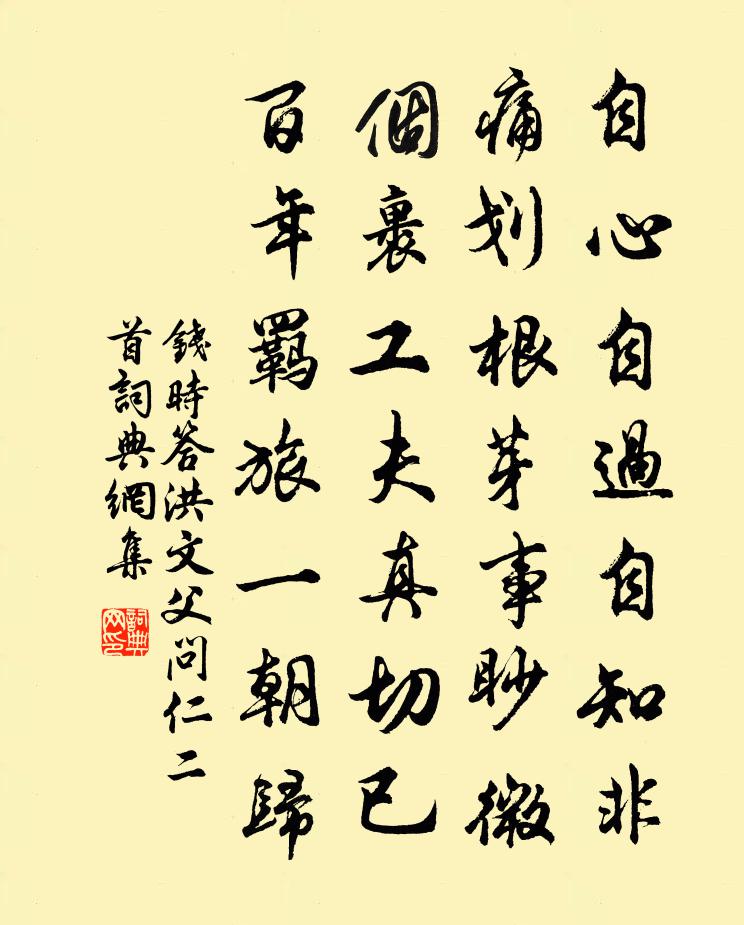 自心自過自知非
痛划根芽事眇微
個裏工夫真切已
百年羈旅一朝歸
錢時答洪文父問仁二
首詞典網集
詞典
网印